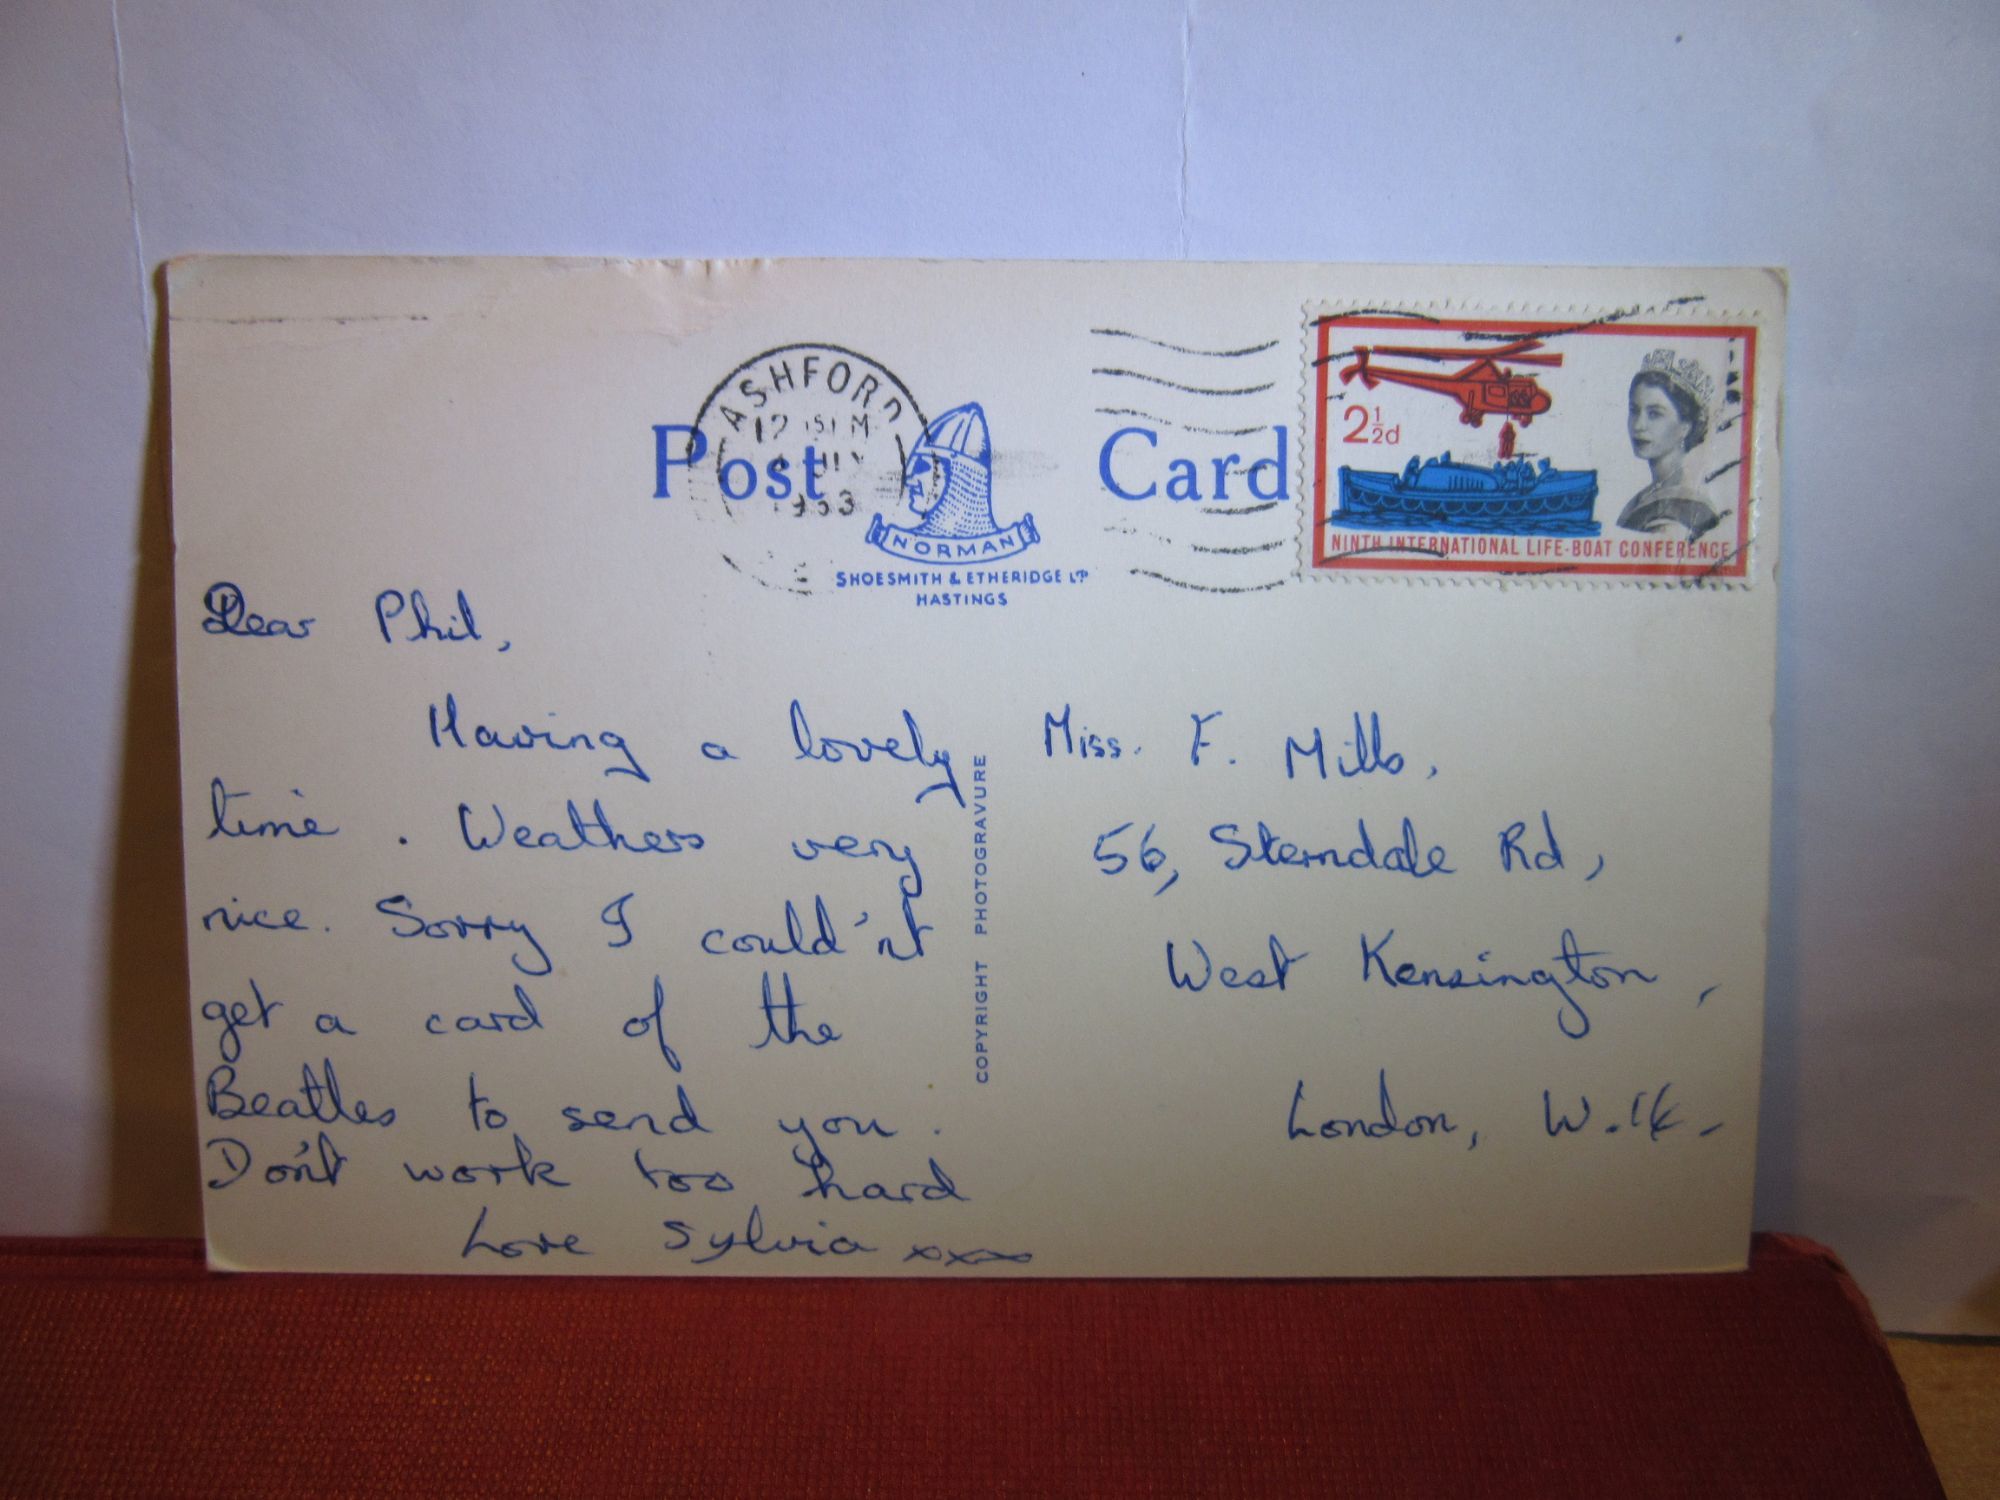 ASHFORD
Post Card
NORMAN
SHOESMITH & ETHERIDGE LTD
HASTINGS
2½d
NINTH INTERNATIONAL LIFE-BOAT CONFERENCE
Dear Phil,
Having a lovely
time. Weathers very
nice. Sorry I could'nt
get a card of the
Beatles to send you.
Don't work too hard
Love Sylvia xxx
COPYRIGHT PHOTOGRAVURE
Miss. F. Mills,
56, Sterndale Rd,
West Kensington,
London, W.14.